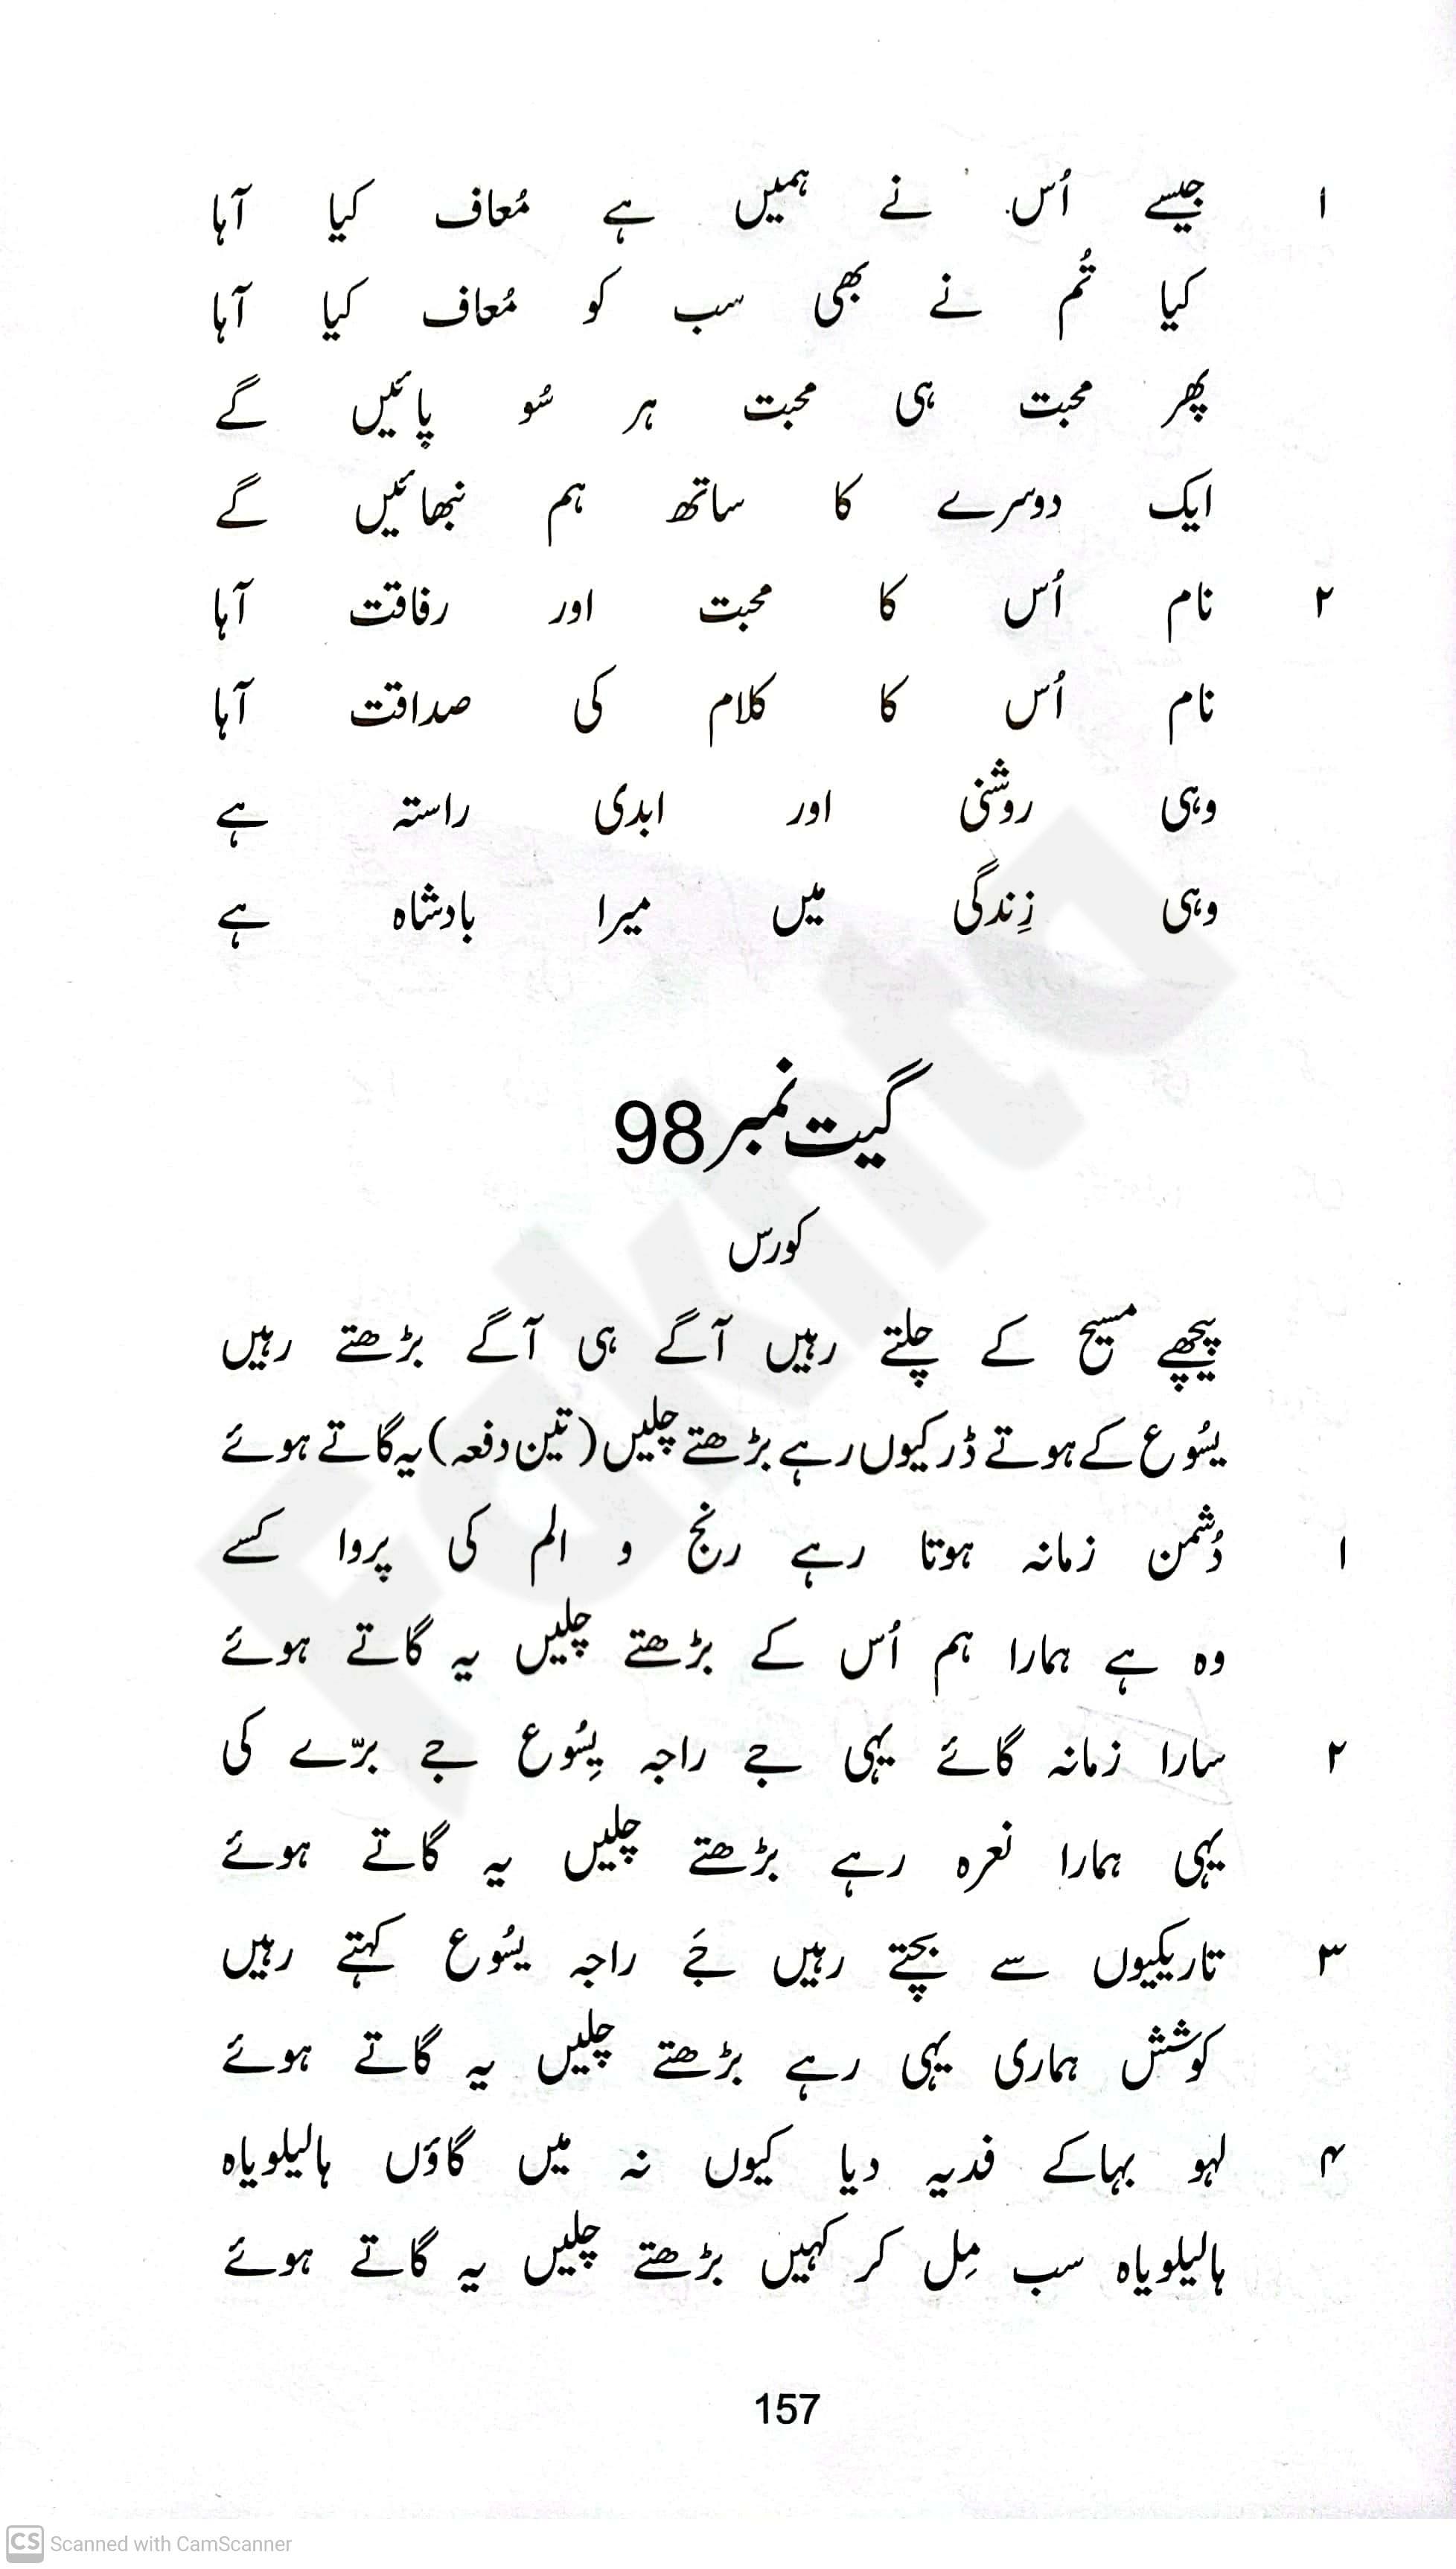 ۱ جیسے اُس نے ہمیں ہے مُعاف کیا آہا
کیا تُم نے بھی سب کو مُعاف کیا آہا
پھر محبت ہی محبت ہر سُو پائیں گے
ایک دوسرے کا ساتھ ہم نبھائیں گے
۲ نام اُس کا محبت اور رفاقت آہا
نام اُس کا کلام کی صداقت آہا
وہی روشنی اور ابدی راستہ ہے
وہی زِندگی میں میرا بادشاہ ہے
گیت نمبر 98
کورس
پیچھے مسیح کے چلتے رہیں آگے ہی آگے بڑھتے رہیں
یسُوع کے ہوتے ڈر کیوں رہے بڑھتے چلیں (تین دفعہ) یہ گاتے ہوئے
۱ دُشمن زمانہ ہوتا رہے رنج و الم کی پروا کسے
وہ ہے ہمارا ہم اُس کے بڑھتے چلیں یہ گاتے ہوئے
۲ سارا زمانہ گائے یہی جے راجہ یِسُوع جے برّے کی
یہی ہمارا نعرہ رہے بڑھتے چلیں یہ گاتے ہوئے
۳ تاریکیوں سے بچتے رہیں جَے راجہ یسُوع کہتے رہیں
کوشش ہماری یہی رہے بڑھتے چلیں یہ گاتے ہوئے
۴ لہو بہاکے فدیہ دیا کیوں نہ میں گاؤں ہالیلویاہ
ہالیلویاہ سب مِل کر کہیں بڑھتے چلیں یہ گاتے ہوئے
157
Fakhta
CS Scanned with CamScanner